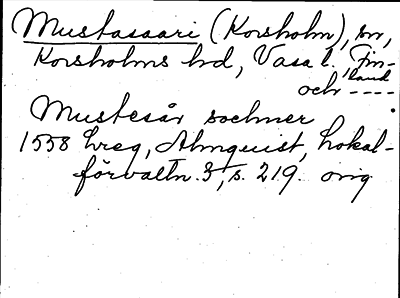 Mustasaari (Korsholm), sn,
Korsholms hd, Vasa l., Fin-
land
och ----
Mustesår sochner
1558 Lreg, Almquist, Lokal-
förvaltn. 3, s. 219. orig